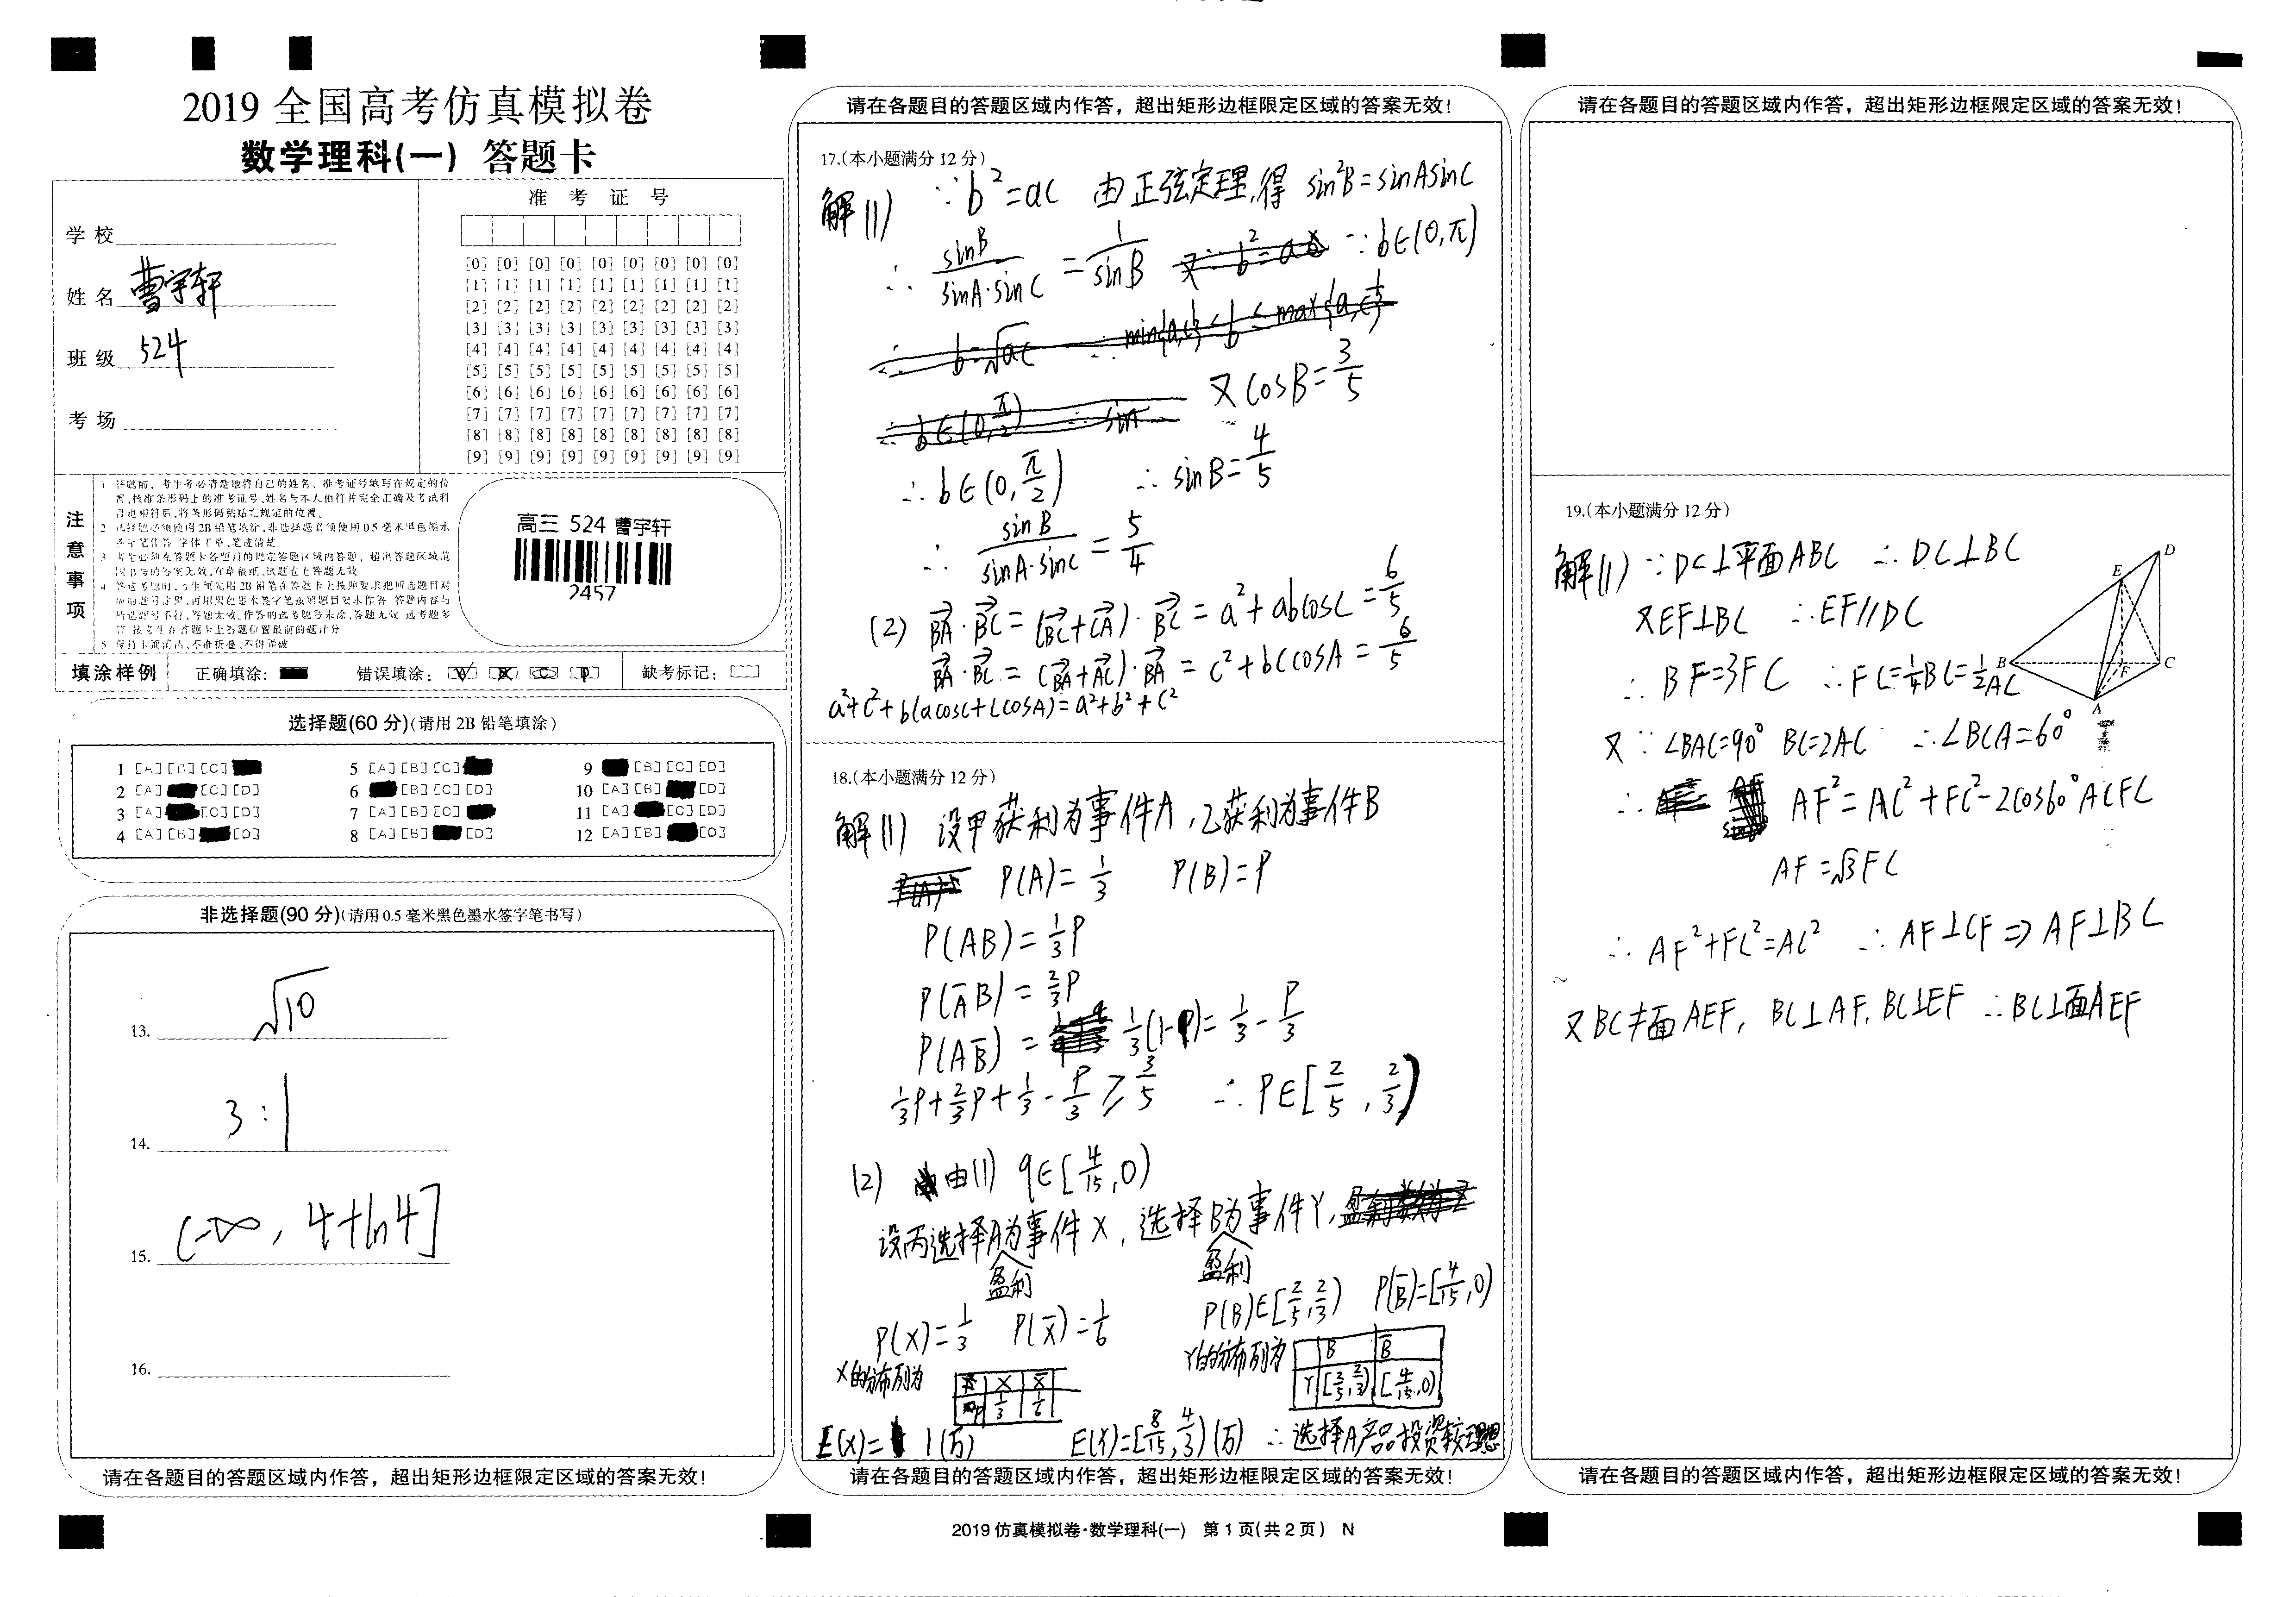 2019 全国高考仿真模拟卷
数学理科(一) 答题卡
学校
姓名 曹宇轩
班级 524
考场
准考证号
[0] [0] [0] [0] [0] [0] [0] [0] [0]
[1] [1] [1] [1] [1] [1] [1] [1] [1]
[2] [2] [2] [2] [2] [2] [2] [2] [2]
[3] [3] [3] [3] [3] [3] [3] [3] [3]
[4] [4] [4] [4] [4] [4] [4] [4] [4]
[5] [5] [5] [5] [5] [5] [5] [5] [5]
[6] [6] [6] [6] [6] [6] [6] [6] [6]
[7] [7] [7] [7] [7] [7] [7] [7] [7]
[8] [8] [8] [8] [8] [8] [8] [8] [8]
[9] [9] [9] [9] [9] [9] [9] [9] [9]
注意事项
1 答题前，考生务必清楚地将自己的姓名、准考证号填写在规定的位
置,核准条形码上的准考证号、姓名与本人相符并完全正确及考试科
目也相符后,将条形码粘贴在规定的位置。
2 选择题必须使用2B铅笔填涂,非选择题必须使用0.5毫米黑色墨水
签字笔作答 字体工整、笔迹清楚
3 考生必须在答题卡各题目的规定答题区域内答题，超出答题区域范
围书写的答案无效,在草稿纸、试题卷上答题无效
5 保持卡面清洁、不准折叠、不得弄破
高三 524 曹宇轩
2457
填涂样例 正确填涂: 错误填涂: 缺考标记:
选择题(60分)(请用2B铅笔填涂)
1 [A] [B] [C] 5 [A] [B] [C] 9 [B] [C] [D]
2 [A] [C] [D] 6 [B] [C] [D] 10 [A] [B] [D]
3 [A] [C] [D] 7 [A] [B] [C] 11 [A] [C] [D]
4 [A] [B] [D] 8 [A] [B] [D] 12 [A] [B] [D]
非选择题(90分)(请用0.5毫米黑色墨水签字笔书写)
13. √10
14. 3:1
15. (-∞, 4+ln4]
16.
请在各题目的答题区域内作答，超出矩形边框限定区域的答案无效!
请在各题目的答题区域内作答，超出矩形边框限定区域的答案无效!
17.(本小题满分12分)
解(1) ∵b²=ac 由正弦定理,得 sin²B=sinAsinC
∴ sinB/(sinA·sinC) = 1/sinB ∵b∈(0,π)
又cosB=3/5
∴b∈(0,π/2) ∴sinB=4/5
∴ sinB/(sinA·sinC) = 5/4
(2) BA·BC=(BC+CA)·BC=a²+abcosC=6/5
BA·BC=(BA+AC)·BA=c²+bccosA=6/5
a²+c²+b(acosC+ccosA)=a²+b²+c²
18.(本小题满分12分)
解(1) 设甲获利为事件A,乙获利为事件B
P(A)=1/3 P(B)=P
P(AB)=1/3P
P(A̅B)=2/3P
P(AB̅)=1/3(1-P)=1/3-P/3
1/3P+2/3P+1/3-P/3≥3/5 ∴P∈[2/5,2/3)
(2) 由(1) q∈[4/15,0)
设丙选择A盈利为事件X,选择B盈利为事件Y,
P(X)=1/3 P(X̅)=1/6 P(B)∈[2/5,2/3) P(B̅)=[4/15,0)
X的分布列为 X X̅
P 1/3 1/6
Y的分布列为 B B̅
Y [2/5,2/3) [4/15,0)
E(X)=1(万) E(Y)=[8/15,4/3)(万) ∴选择A产品投资较理想
请在各题目的答题区域内作答，超出矩形边框限定区域的答案无效!
2019仿真模拟卷·数学理科(一) 第1页(共2页) N
请在各题目的答题区域内作答，超出矩形边框限定区域的答案无效!
19.(本小题满分12分)
解(1) ∵DC⊥平面ABC ∴DC⊥BC
又EF⊥BC ∴EF∥DC
∴BF=3FC ∴FC=1/4BC=1/2AC
又∵∠BAC=90° BC=2AC ∴∠BCA=60°
∴ AF²=AC²+FC²-2cos60°ACFC
AF=√3FC
∴AF²+FC²=AC² ∴AF⊥CF⇒AF⊥BC
又BC⊄面AEF, BC⊥AF, BC⊥EF ∴BC⊥面AEF
D
E
B
C
F
A
请在各题目的答题区域内作答，超出矩形边框限定区域的答案无效!